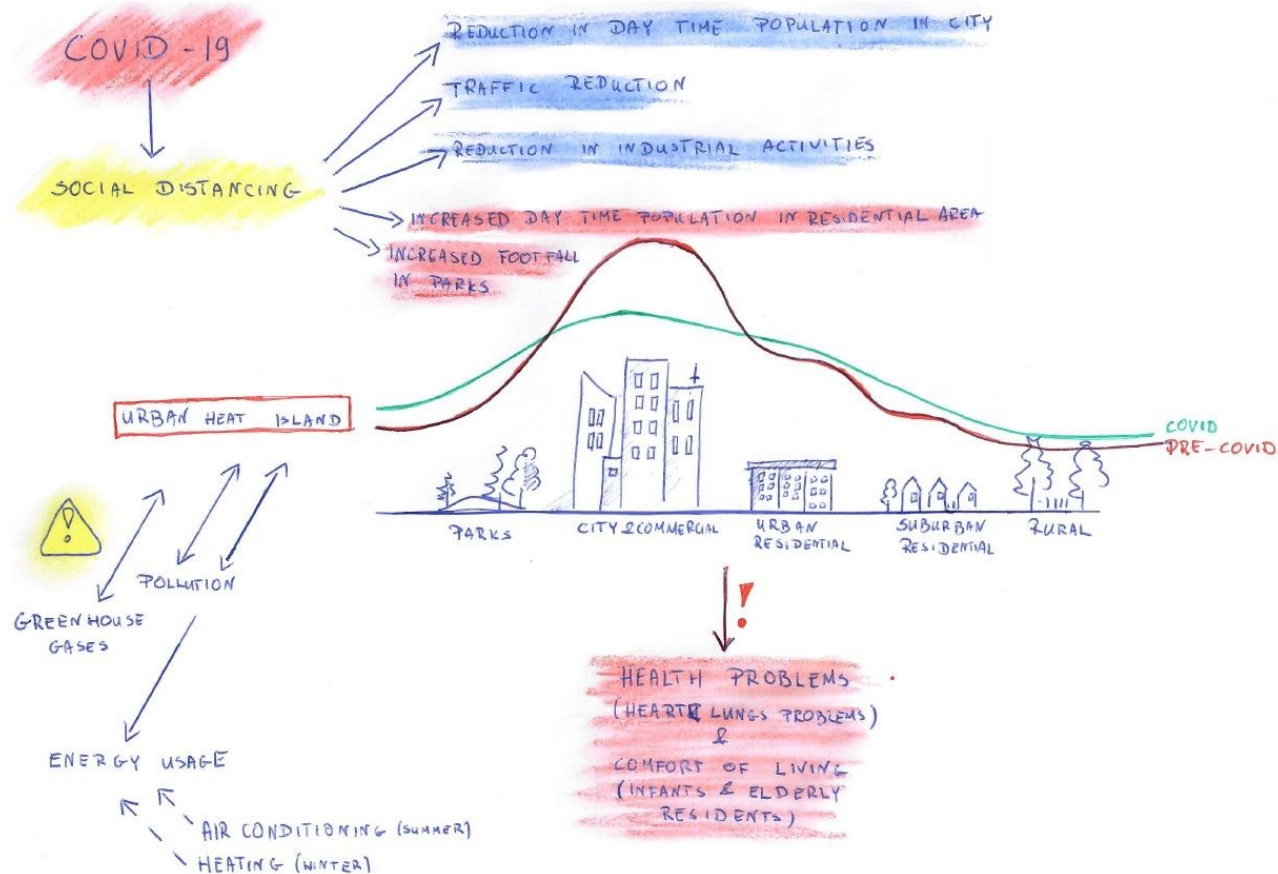 COVID-19
SOCIAL DISTANCING
REDUCTION IN DAY TIME POPULATION IN CITY
TRAFFIC REDUCTION
REDUCTION IN INDUSTRIAL ACTIVITIES
INCREASED DAY TIME POPULATION IN RESIDENTIAL AREA
INCREASED FOOTFALL
IN PARKS
URBAN HEAT ISLAND
COVID
PRE-COVID
PARKS
CITY & COMMERCIAL
URBAN
RESIDENTIAL
SUBURBAN
RESIDENTIAL
RURAL
!
POLLUTION
GREENHOUSE
GASES
ENERGY USAGE
AIR CONDITIONING (SUMMER)
HEATING (WINTER)
!
HEALTH PROBLEMS
(HEART & LUNGS PROBLEMS)
&
COMFORT OF LIVING
(INFANTS & ELDERLY
RESIDENTS)